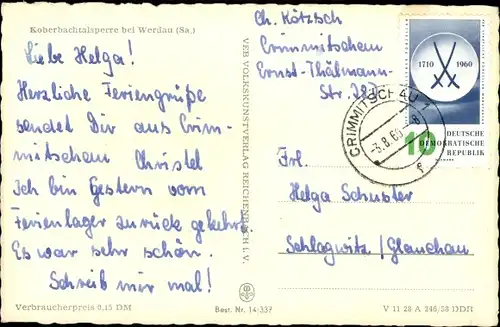 Koberbachtalsperre bei Werdau (Sa.)
Liebe Helga!
Herzliche Feriengrüße
sendet Dir aus Crim-
mitschau Christel
Ich bin Gestern vom
Ferienlager zurück gekehrt.
Es war sehr schön.
Schreib mir mal!
Verbraucherpreis 0,15 DM
VEB VOLKSKUNSTVERLAG REICHENBACH I. V.
Best. Nr. 14-337
Ch. Kötzsch
Crimmitschau
Ernst-Thälmann-
Str.
1710 1960
10
DEUTSCHE
DEMOKRATISCHE
REPUBLIK
CRIMMITSCHAU 1
Frl.
Helga Schuster
Schlagwitz/Glauchau
V 11 28 A 246/58 DDR